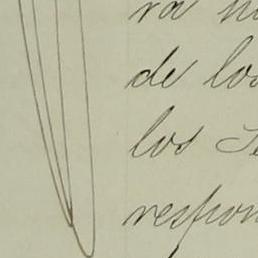 ra
de los
los
respon